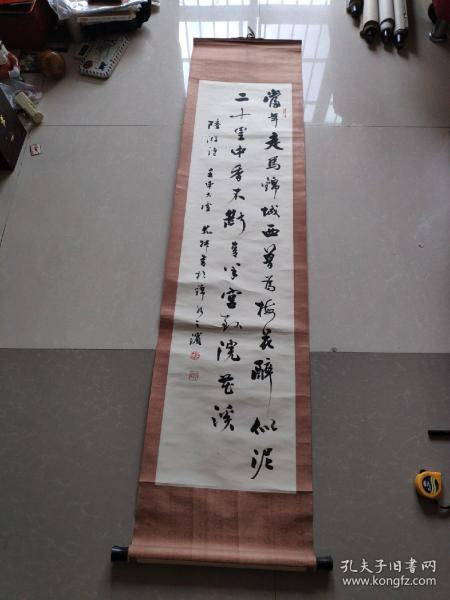 當年走馬錦城西曾為梅花醉似泥
二十里中香不斷青羊宮到浣花溪
陸游詩 大雪 書於錦水之濱
孔夫子旧书网
www.kongfz.com